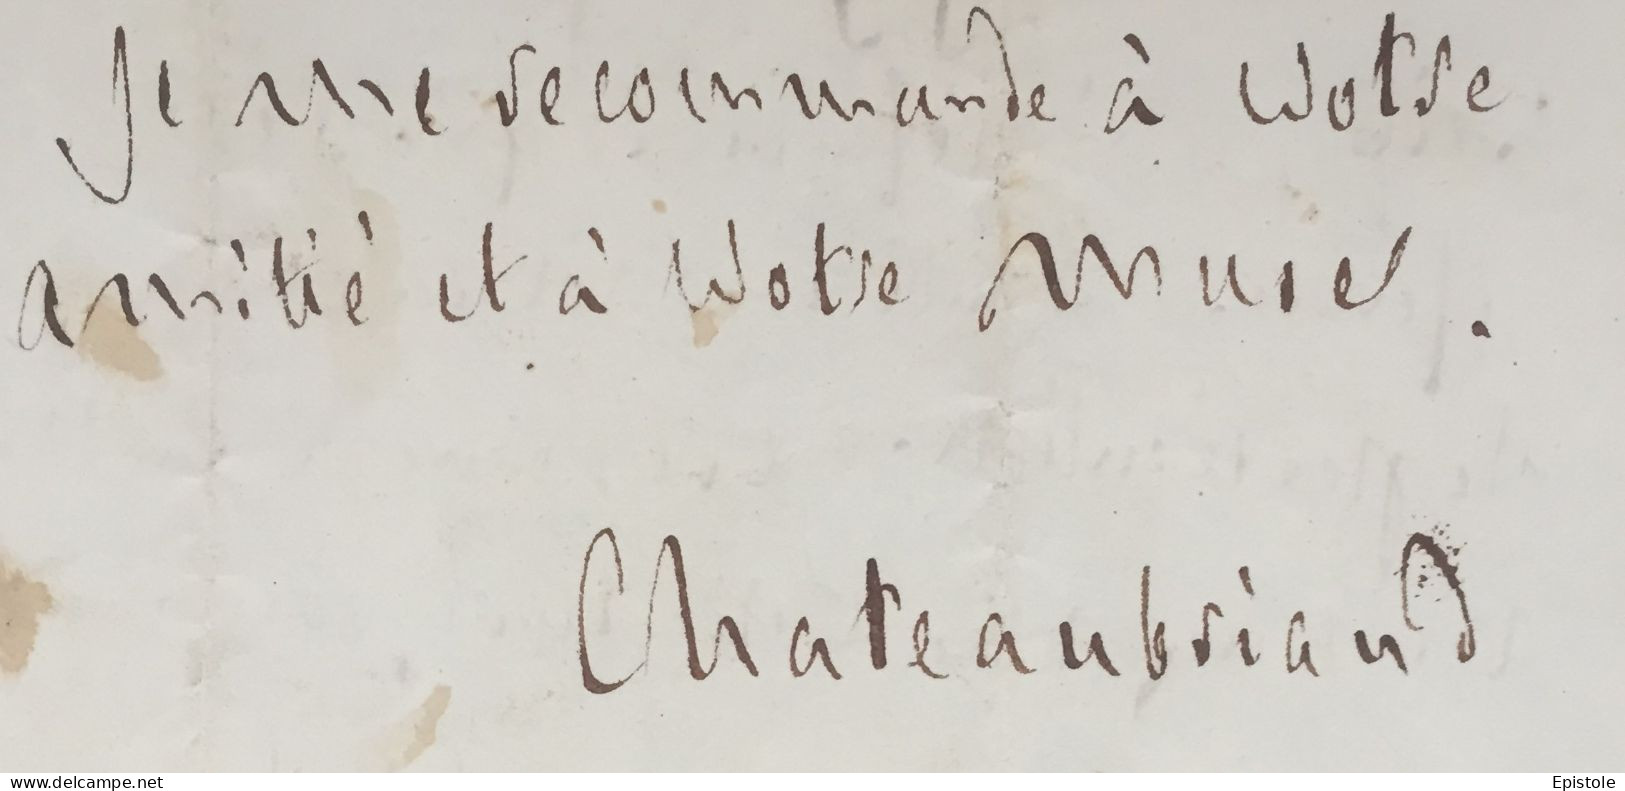 Je me recommande à votre
amitié et à votre muse.
Chateaubriand
www.delcampe.net
Epistole